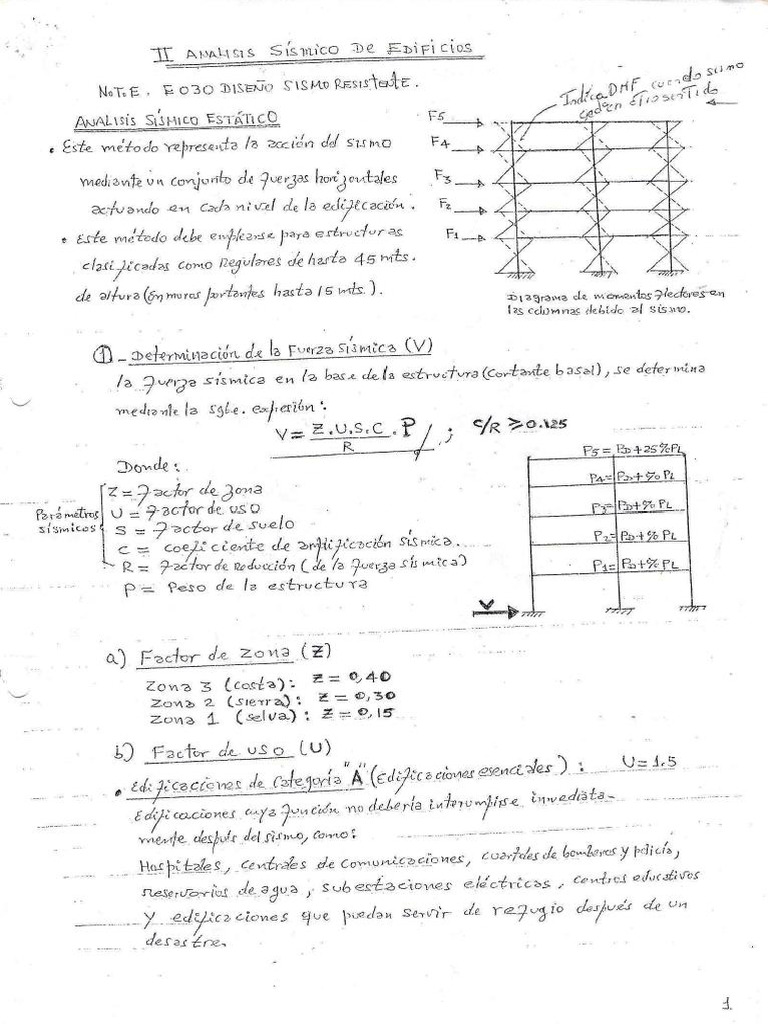 II ANALISIS SÍSMICO DE EDIFICIOS
N.T.E. E030 DISEÑO SISMO RESISTENTE.
ANALISIS SÍSMICO ESTÁTICO
• Este método representa la acción del sismo
mediante un conjunto de fuerzas horizontales
actuando en cada nivel de la edificación.
• Este método debe emplearse para estructuras
clasificadas como Regulares de hasta 45 mts.
de altura (En muros portantes hasta 15 mts).
Indica DMF cuando sismo
en otro sentido
F5
F4
F3
F2
F1
Diagrama de momentos flectores en
las columnas debido al sismo.
① - Determinación de la Fuerza Sísmica (V)
la fuerza sísmica en la base de la estructura (cortante basal), se determina
mediante la sgte. expresión:
V = Z.U.S.C / R . P ; C/R ≥ 0.125
Donde:
Parámetros sísmicos
Z = Factor de zona
U = Factor de uso
S = Factor de suelo
C = coeficiente de amplificación sísmica.
R = Factor de Reducción (de la fuerza sísmica)
P = Peso de la estructura
P5 = PD + 25% PL
P4 = PD + % PL
P3 = PD + % PL
P2 = PD + % PL
P1 = PD + % PL
V
a) Factor de zona (Z)
Zona 3 (costa): Z = 0,40
Zona 2 (sierra): Z = 0,30
Zona 1 (selva): Z = 0,15
b) Factor de uso (U)
• Edificaciones de Categoría "A" (Edificaciones esenciales): U = 1.5
Edificaciones cuya función no debería interrumpirse inmediata-
mente después del sismo, como:
Hospitales, centrales de comunicaciones, cuarteles de bomberos y policía,
reservorios de agua, subestaciones eléctricas, centros educativos
y edificaciones que puedan servir de refugio después de un
desastre.
1.